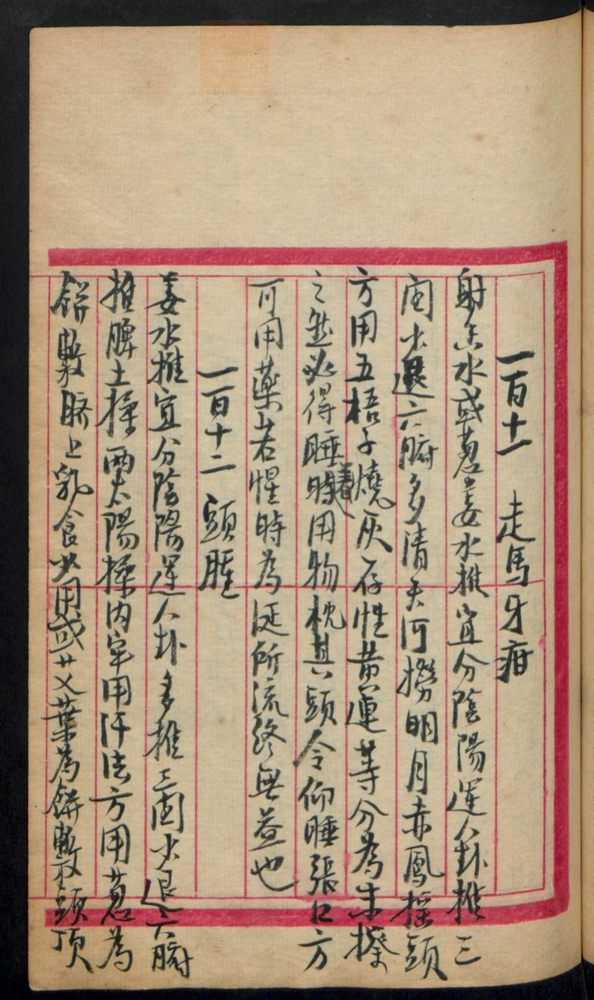 一百十一 走馬牙疳
射香水或蔥姜水推宜分陰陽運八卦推三
関大退六腑多清天河撈明月赤鳳搖頭
方用五梧子燒灰存性黃連等分為末搽
之然必得睡着時用物枕其頭令仰睡張口方
可用藥若惺時為涎所流終無益也
一百十二 頭腫
姜水推宜分陰陽運八卦多推三関大退六腑
推脾土揉両太陽揉內牢用汗法方用蔥為
餅敷臍上乳食少用或艾葉為餅敷頭頂